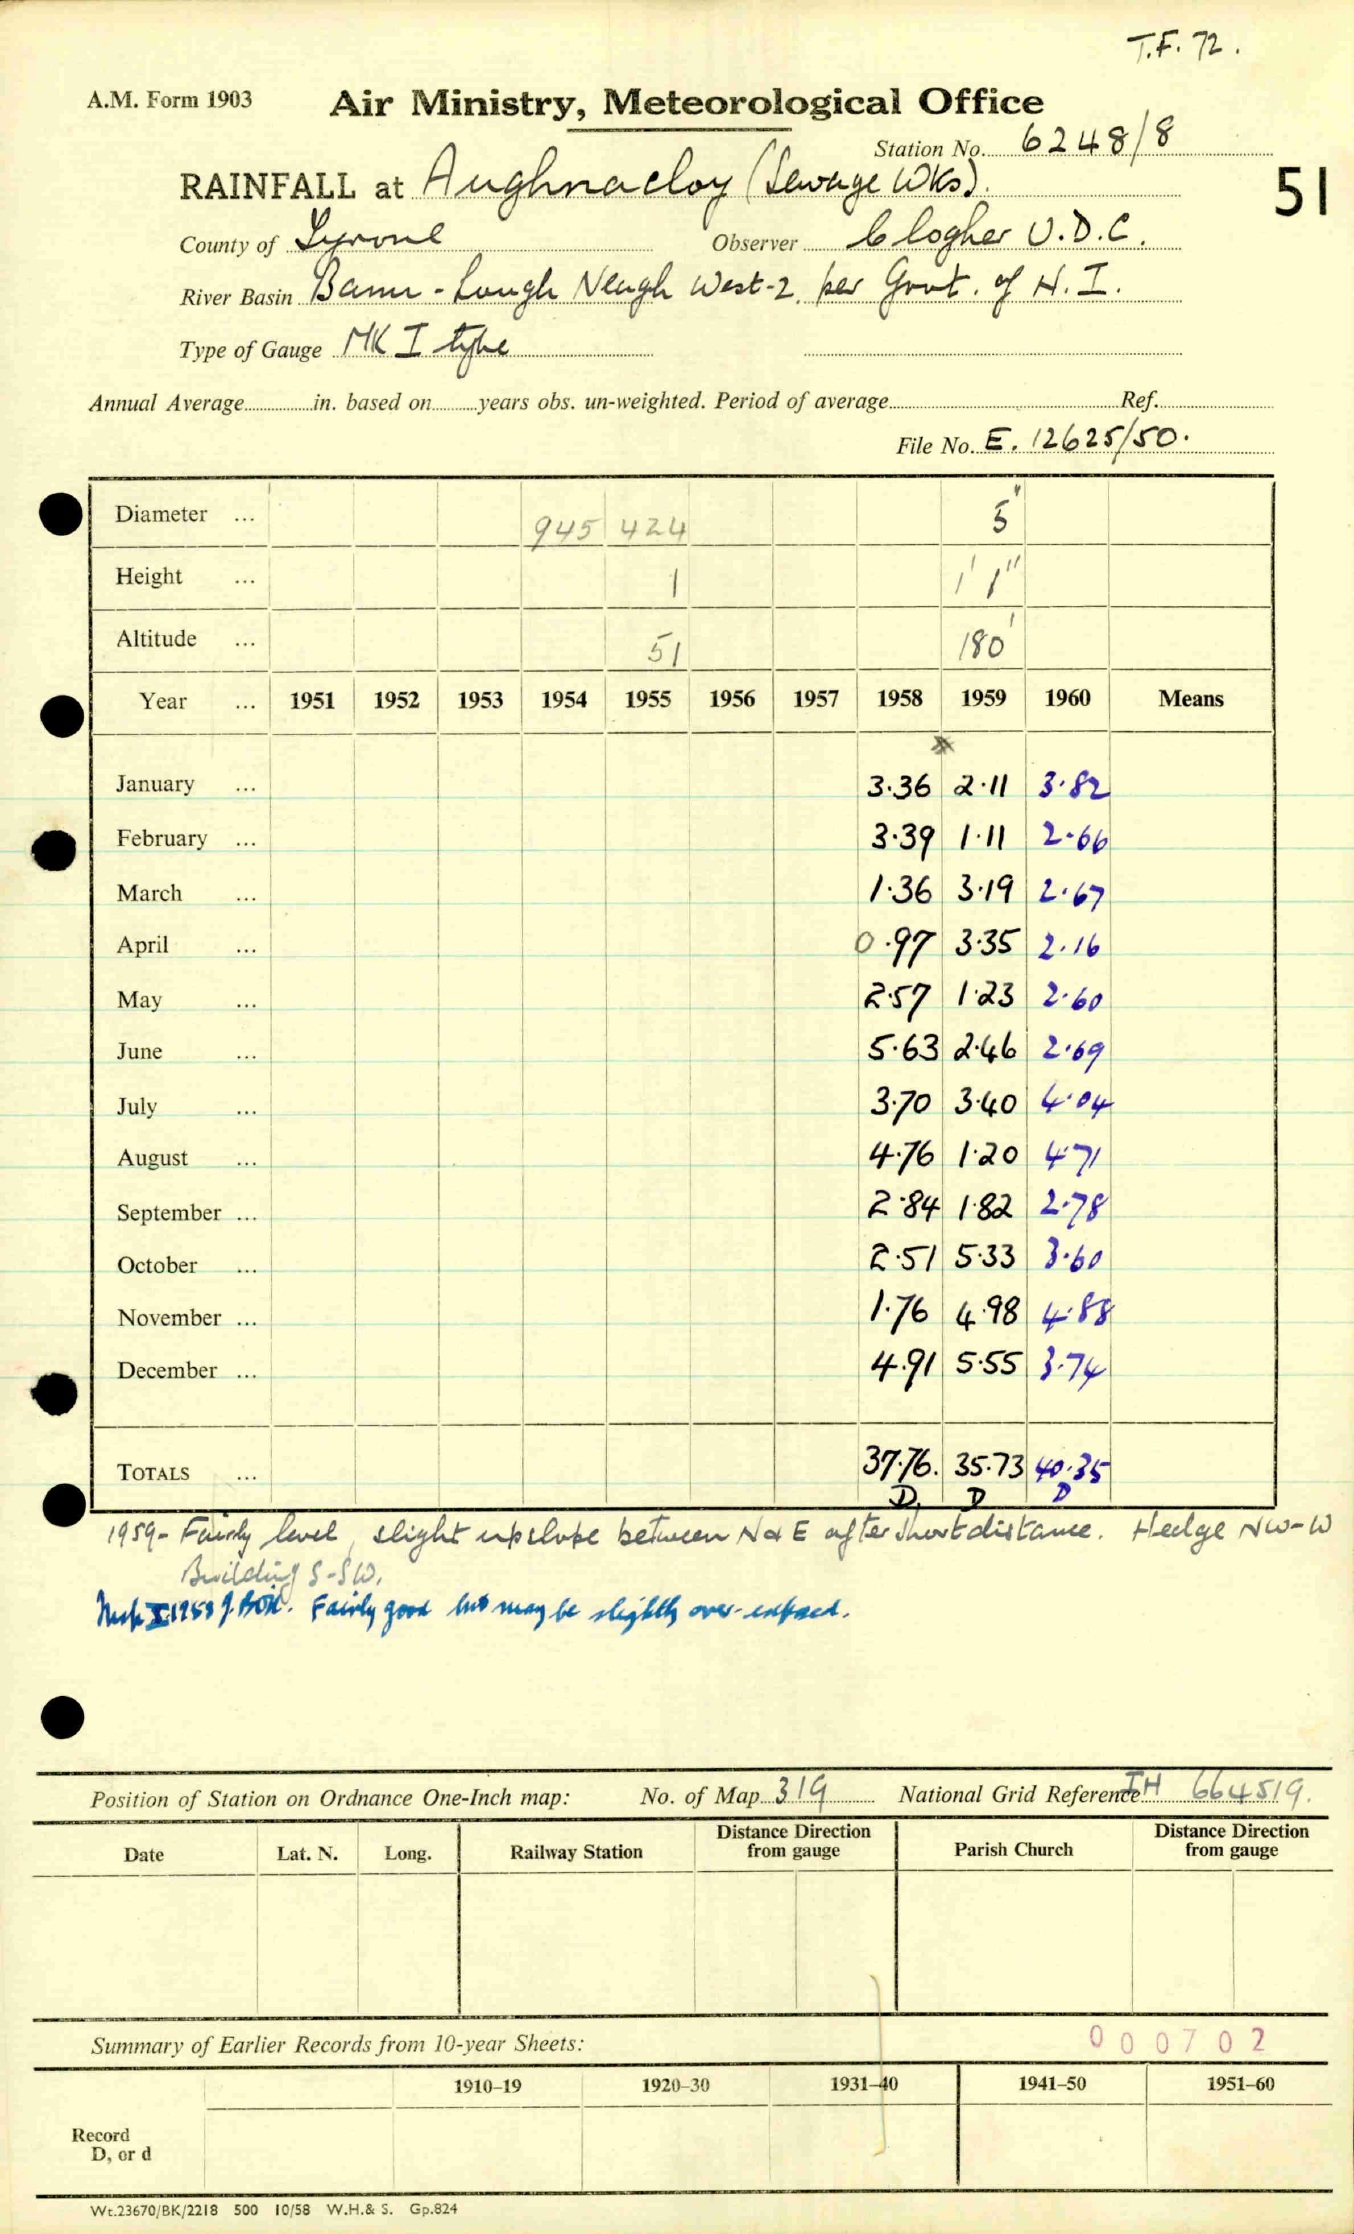 T.F. 72.
A.M. Form 1903 Air Ministry, Meteorological Office
Station No. 6248/8
RAINFALL at Aughnacloy (Sewage Wks).
51
County of Tyrone Observer Clogher U.D.C.
River Basin Bann - Lough Neagh West-2. per Govt. of N.I.
Type of Gauge MK I type
Annual Average in. based on years obs. un-weighted. Period of average Ref.
File No. E. 12625/50.
Diameter ... 945 424 5"
Height ... 1 1' 1"
Altitude ... 51 180'
Year ... 1951 1952 1953 1954 1955 1956 1957 1958 1959 1960 Means
January ... 3.36 2.11 3.82
February ... 3.39 1.11 2.66
March ... 1.36 3.19 2.67
April ... 0.97 3.35 2.16
May ... 2.57 1.23 2.60
June ... 5.63 2.46 2.69
July ... 3.70 3.40 4.04
August ... 4.76 1.20 4.71
September ... 2.84 1.82 2.78
October ... 2.51 5.33 3.60
November ... 1.76 4.98 4.88
December ... 4.91 5.55 3.74
TOTALS ... 37.76. 35.73 40.35
D. D D
1959 - Fairly level, slight upslope between N & E after short distance. Hedge NW-W
Building S-SW.
X 1958 Fairly good but may be slightly over-exposed.
Position of Station on Ordnance One-Inch map: No. of Map 319 National Grid Reference IH 664519.
Date Lat. N. Long. Railway Station Distance Direction from gauge Parish Church Distance Direction from gauge
Summary of Earlier Records from 10-year Sheets:
000702
1910–19 1920–30 1931–40 1941–50 1951–60
Record
D, or d
Wt.23670/BK/2218 500 10/58 W.H.& S. Gp.824